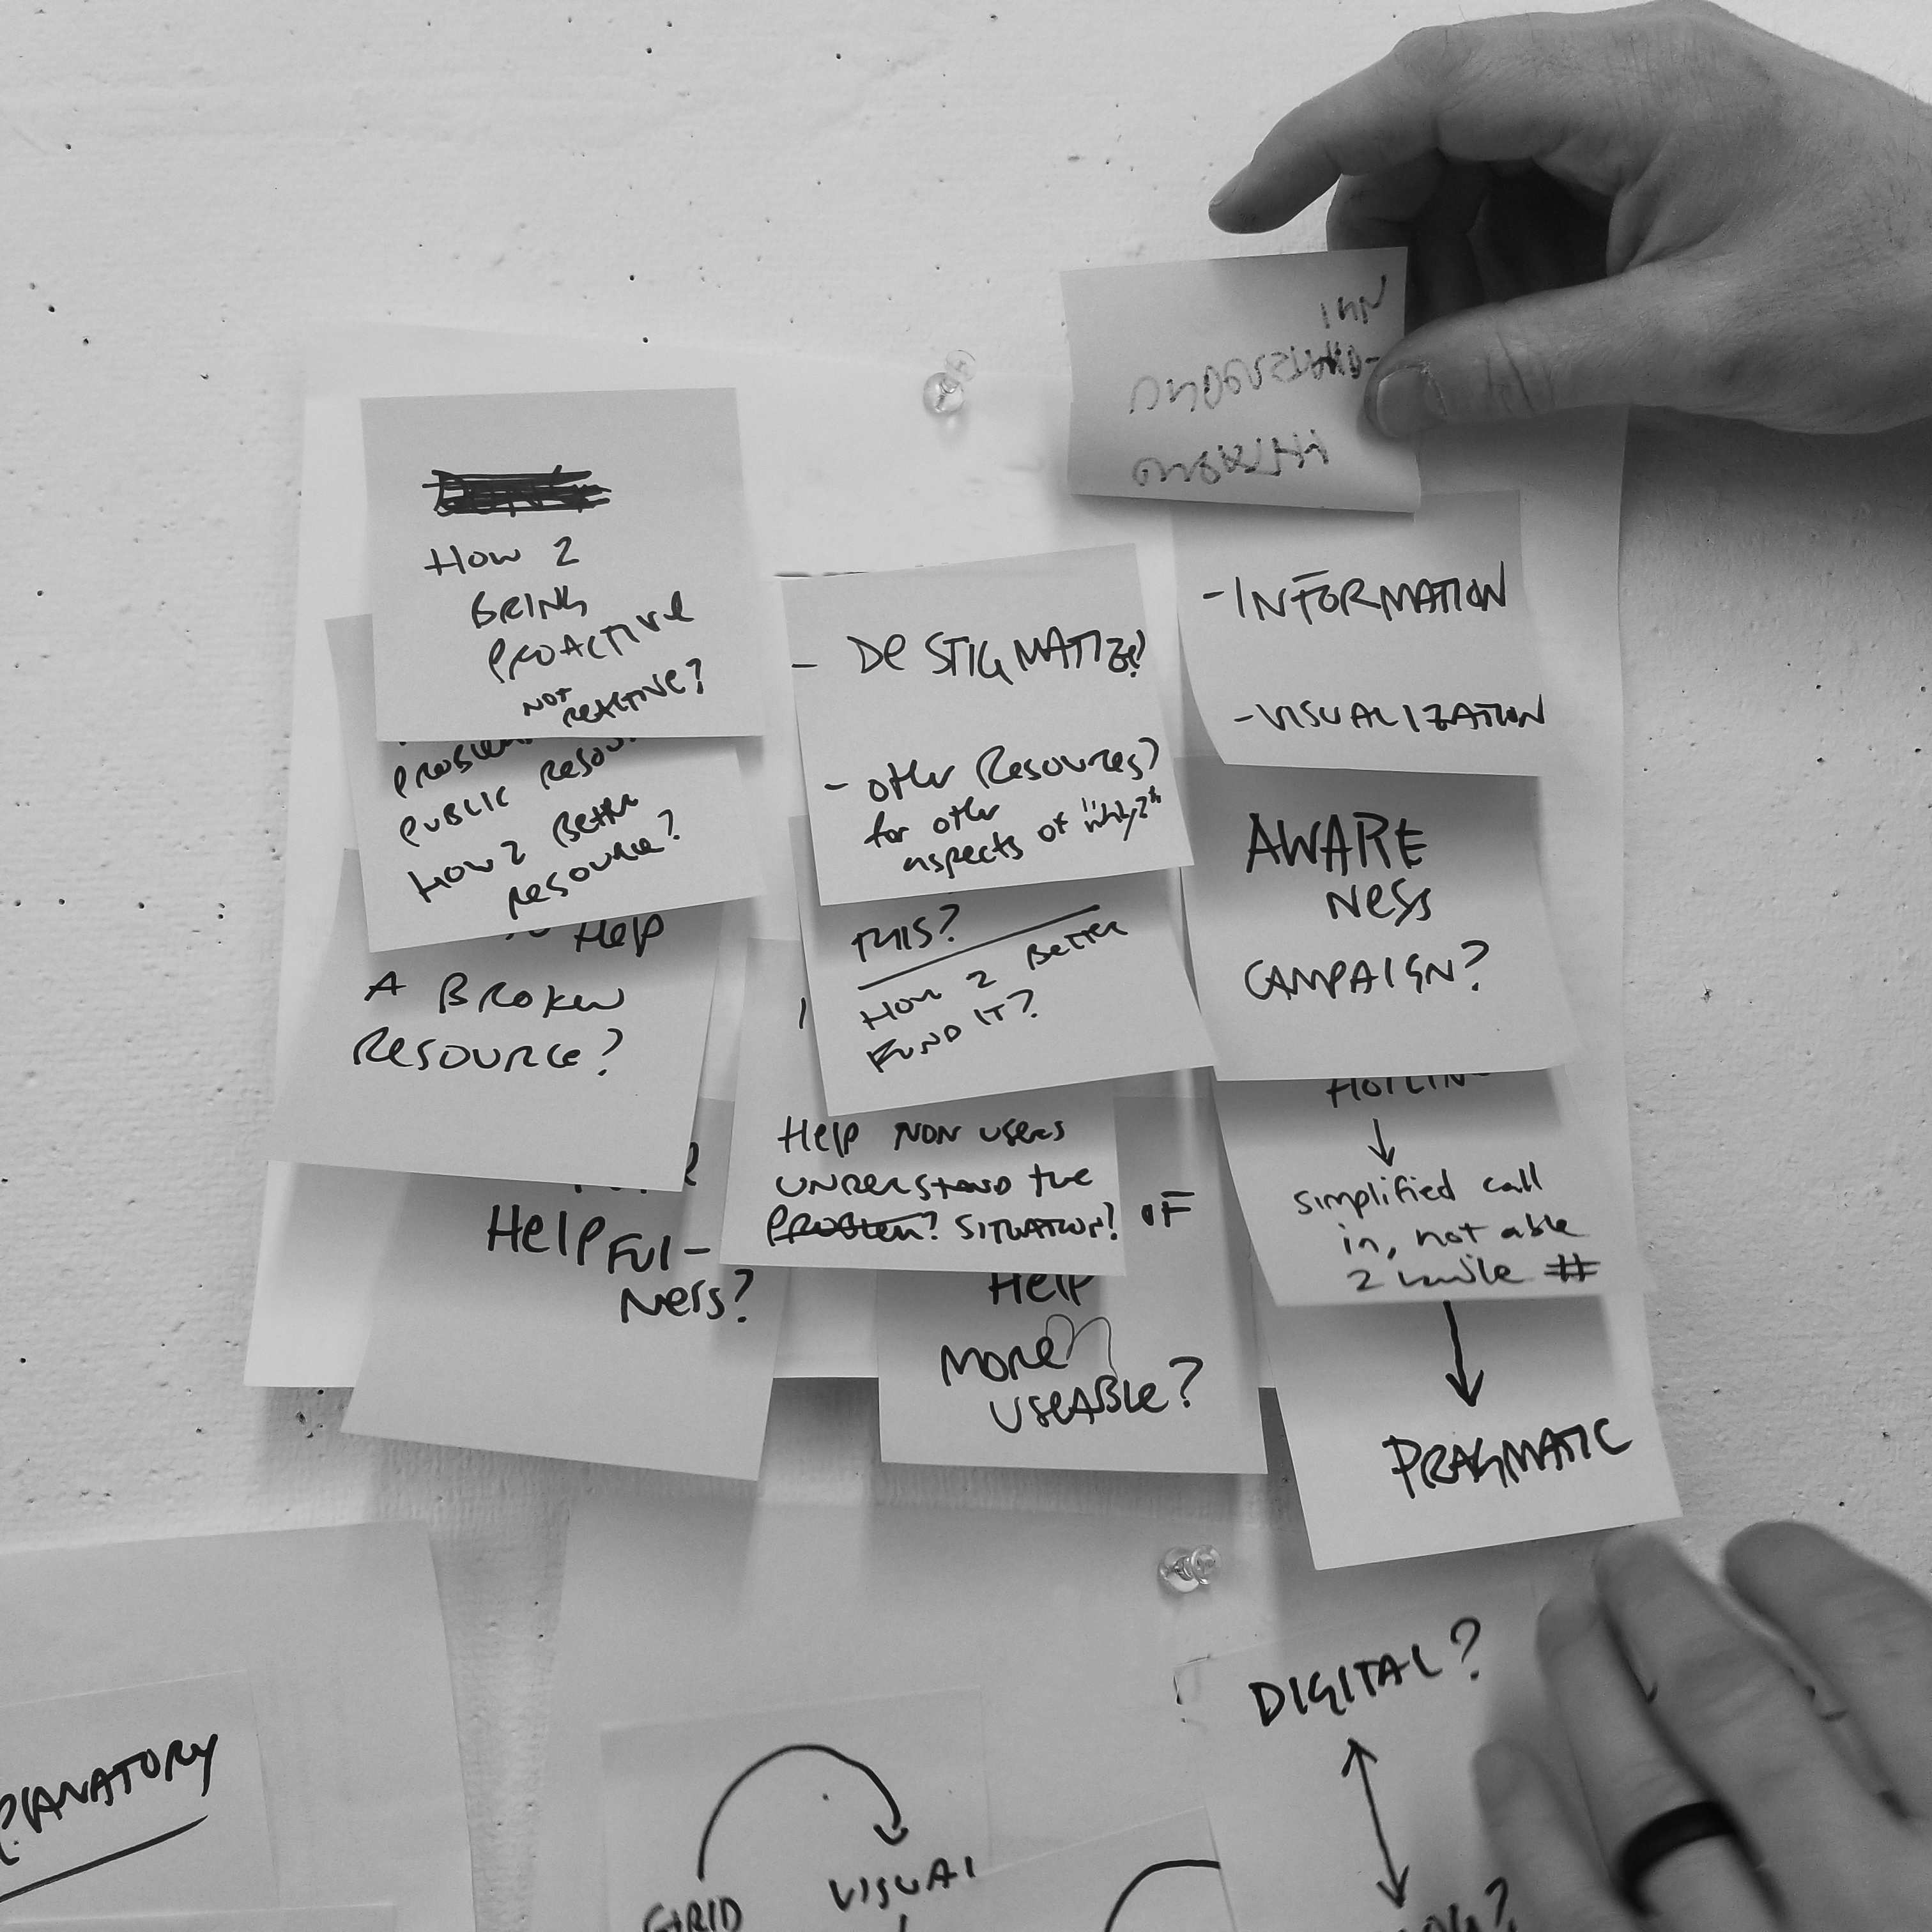 How 2
BRING
PROACTIVE
NOT
REACTIVE?
PUBLIC
HOW 2 BETTER
RESOURCE?
Help
A BROKEN
RESOURCE?
HelpFul-
Ness?
- De STIGMATIZE?
- other Resources?
for other
aspects of "why?"
THIS?
How 2 BETTER
FUND IT?
Help NON users
UNDERSTAND the
PROBLEM? SITUATION?
OF
Help
MORE
USEABLE?
- INFORMATION
- VISUALIZATION
AWARE
NESS
CAMPAIGN?
simplified call
in, not able
2 handle #
PRAGMATIC
GRID
VISUAL
DIGITAL?